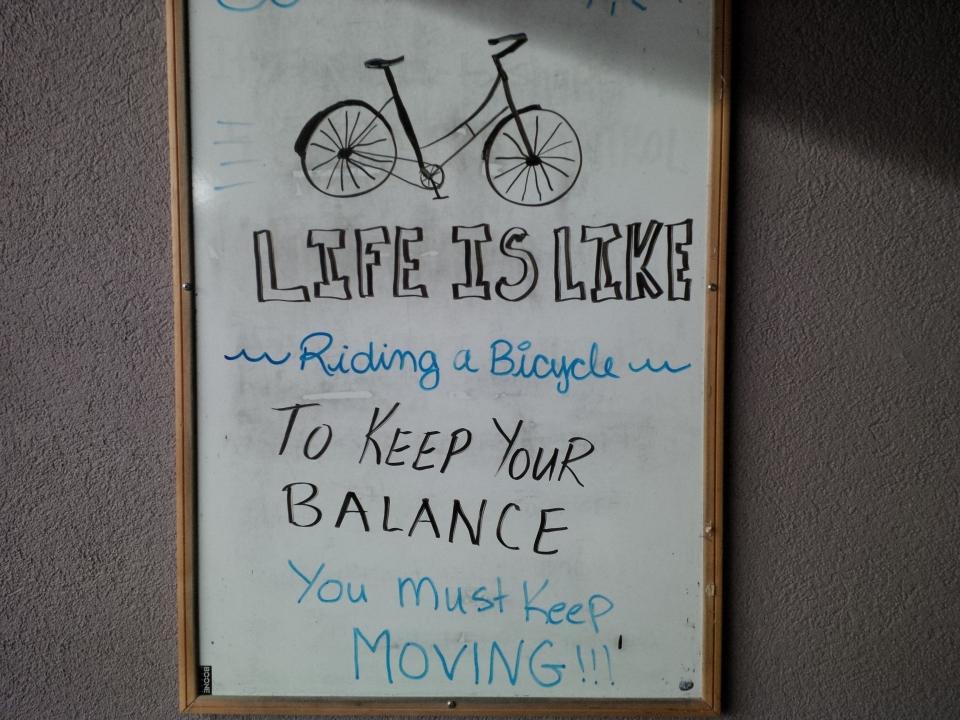 LIFE IS LIKE
Riding a Bicycle
TO KEEP YOUR
BALANCE
You Must Keep
MOVING!!!
BOONE